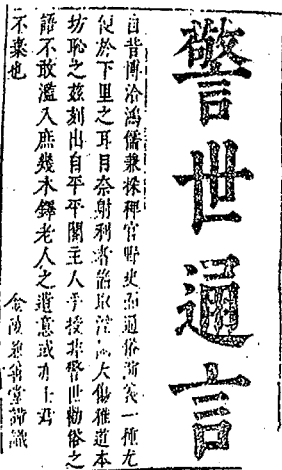 警世通言
自昔博洽鴻儒兼採稗官野史而通俗演義一種尤
便於下里之耳目奈射利者 取淫 大傷雅道本
坊恥之茲刻出自平平閣主人手授非警世勸俗之
語不敢濫入庶幾木鐸老人之遺意或亦士君
不棄也
金陵兼善堂謹識